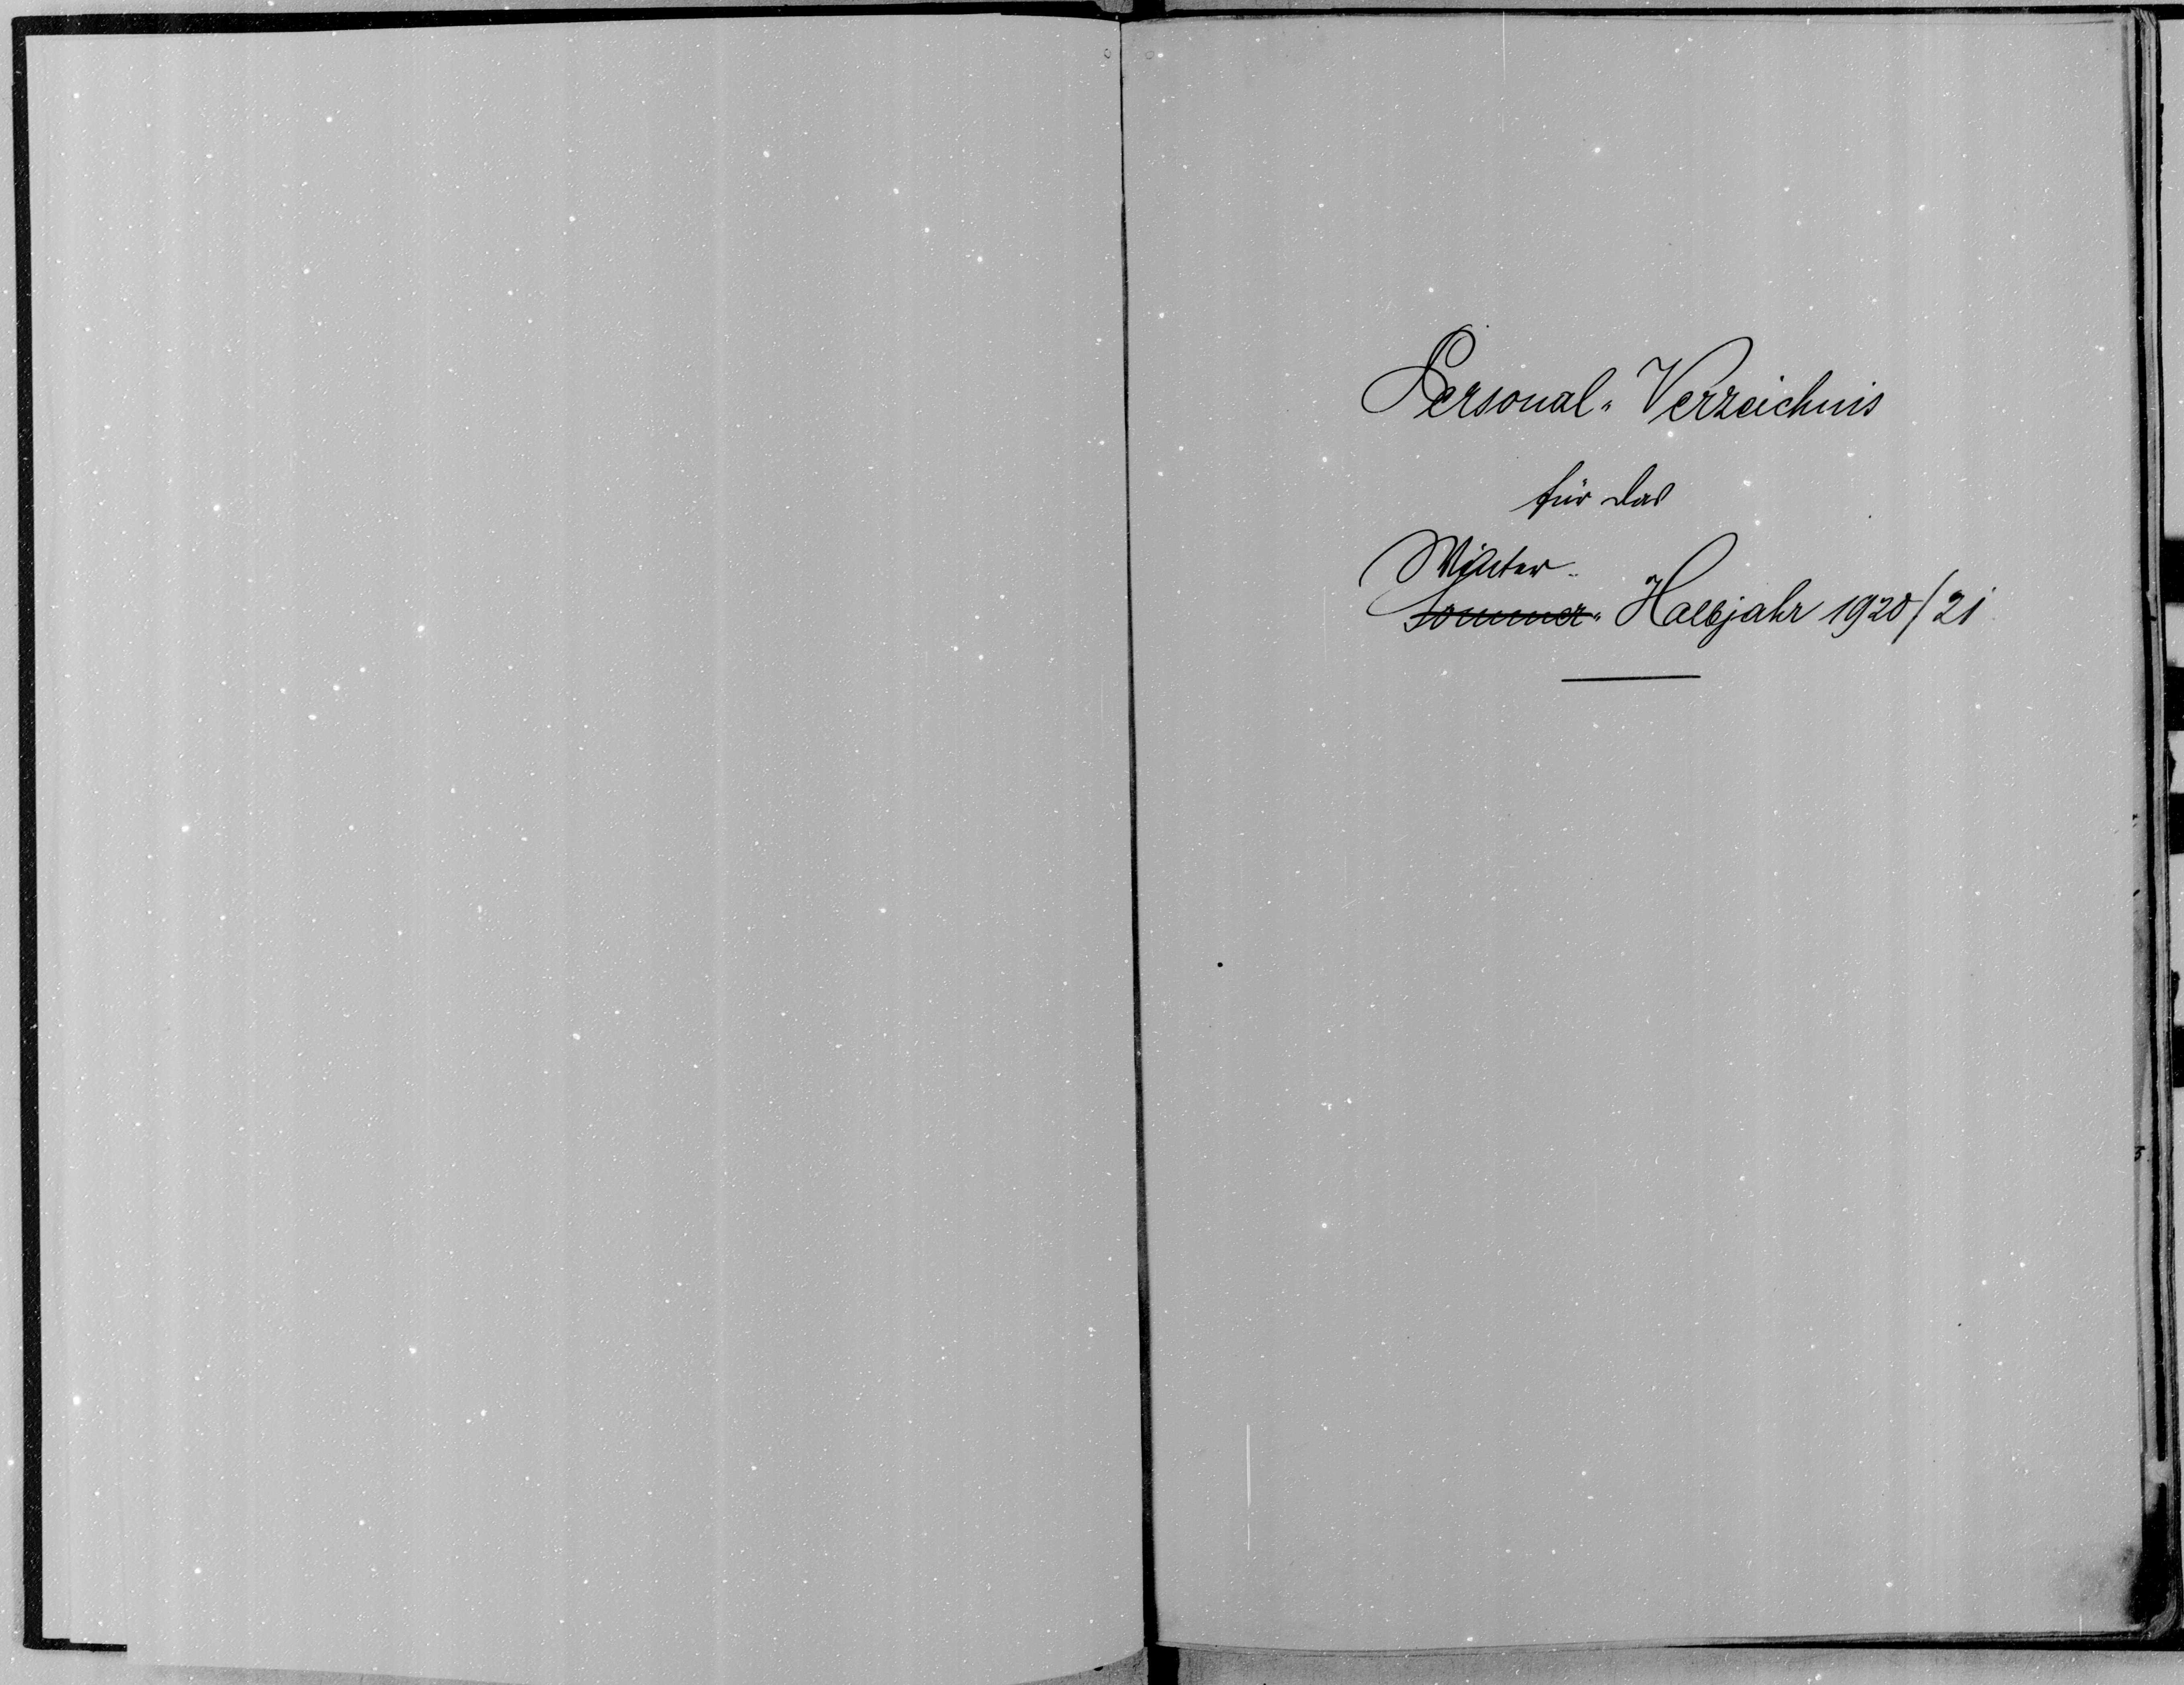 Personal-Verzeichnis
für das
Winter-
Sommer-Halbjahr 1920/21